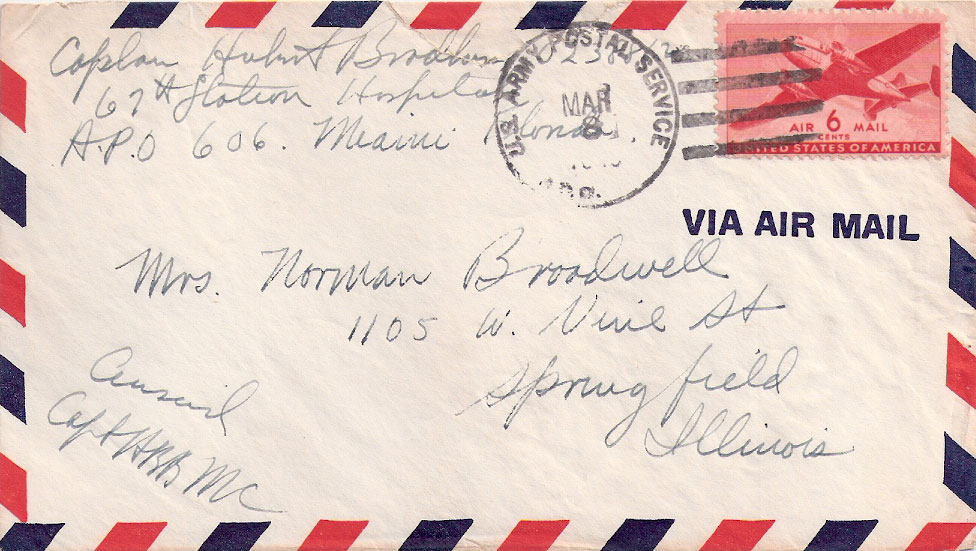 Hubert
67th Station Hospital
A.P.O 606. Miami Florida.
U.S. ARMY POSTAL SERVICE
MAR
A.P.O.
AIR 6 MAIL
CENTS
UNITED STATES OF AMERICA
VIA AIR MAIL
Mrs. Norman Broadwell
1105 W. Vine St
Springfield
Illinois
Capt HBB MC